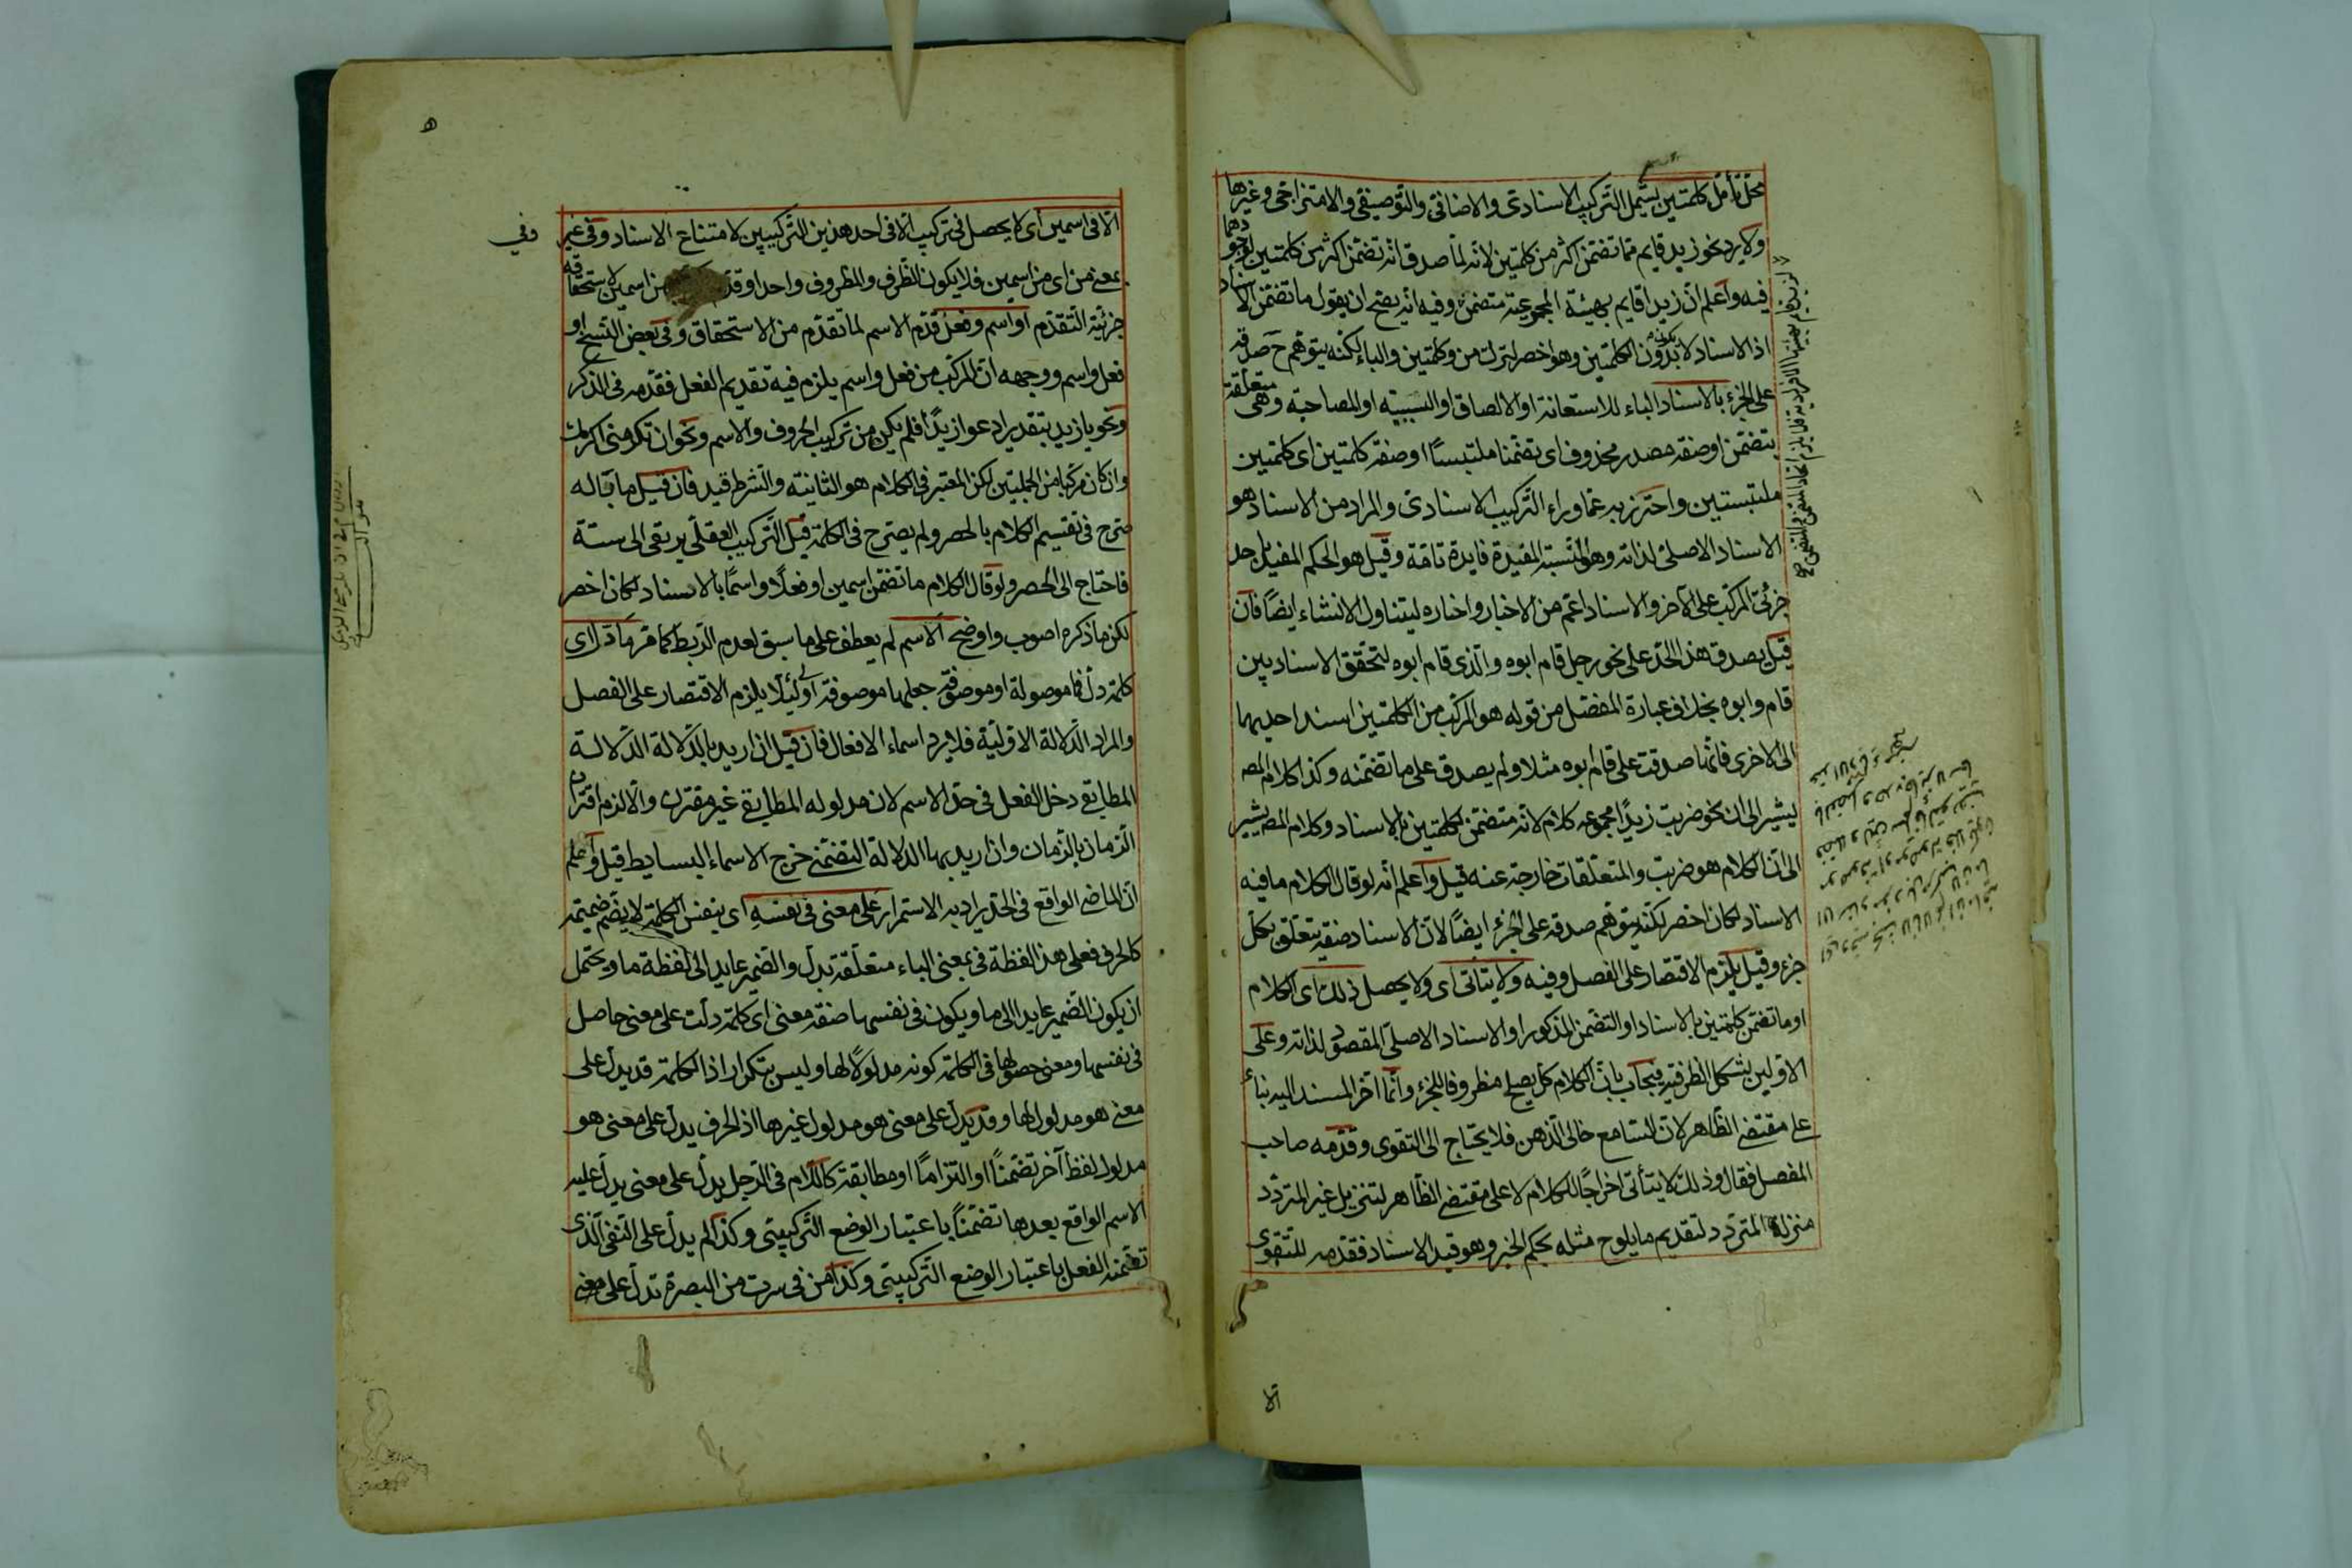 محل تأمل كلمتين ليشمل التركيب الاسنادى والاضافى والتوصيفى والامتزاجى وغيرها
ولا يرد نحو زيد قايم مما تضمن اكثر من كلمتين لانه لما صدق انه تضمن اكثر من كلمتين
فيه واعلم ان زيدا قايم بهيئته المجموعية متضمن وفيه انه يصح ان يقول ما تضمن الاسناد
اذ الاسناد لا بدون الكلمتين وهو اخصر لترك من وكلمتين والباء لكنه يتوهم ح صدقه
على الجزء بالاسناد الباء للاستعانة او الالصاق او السببيه او المصاحبة وهى متعلقة
بتضمن او صفة مصدر محذوف اى تضمنا ملتبسا او صفة كلمتين اى كلمتين
ملتبستين واحترز به عما وراء التركيب الاسنادى والمراد من الاسناد هو
الاسناد الاصلى لذاته وهو النسبة المفيدة فايدة تامة وقيل هو الحكم المفيد باحد
جزئى المركب على الآخر والاسناد اعم من الاخبار واختاره ليتناول الانشاء ايضا فان
قيل يصدق هذا الحد على نحو رجل قام ابوه والذى قام ابوه لتحقق الاسناد بين
قام وابوه بخلاف عبارة المفصل من قوله هو المركب من الكلمتين اسند احديهما
الى الاخرى فانها صدقت على قام ابوه مثلا ولم يصدق على ما تضمنه وكذا كلام المصه
يشير الى ان نحو ضربت زيدا مجموعه كلام لانه متضمن لكلمتين بالاسناد وكلام المص يشير
الى ان الكلام هو ضربت والمتعلقات خارجة عنه قيل واعلم انه لو قال الكلام ما فيه
الاسناد لكان اخصر لكنه يتوهم صدقه على الجزء ايضا لان الاسناد صفة يتعلق بكل
جزء وقيل يلزم الاقتصار على الفصل وفيه ولا يتأتى اى ولا يحصل ذلك اى الكلام
او ما تضمن كلمتين بالاسناد او التضمن المذكور او الاسناد الاصلى المقصود لذاته وعلى
الاولين يشكل الظرفية فيجاب بان الكلام كل يصلح مظروفا للجزء وانما اخر المسند اليه بناء
على مقتضى الظاهر لان السامع خالى الذهن فلا يحتاج الى التقوى وقدمه صاحب
المفصل فقال وذلك لا يتأتى اخراجا للكلام لا على مقتضى الظاهر لتنزيل غير المتردد
منزلة المتردد لتقديم ما يلوح مثله بحكم الخبر وهو قيد الاسناد فقدمه للتقوى
الا
ه
الا فى اسمين اى لا يحصل فى تركيب الا فى احد هذين التركيبين لامتناع الاسناد وفى غير
وفي
بمعنى من اى من اسمين فلا يكون الظرف والمظروف واحدا وقدم من اسمين لاستحقاقه
جزئية التقدم او اسم وفعل قدم الاسم لما تقدم من الاستحقاق وفى بعض النسخ او
فعل واسم ووجهه ان المركب من فعل واسم يلزم فيه تقديم الفعل فقدمه فى الذكر
ونحو يا زيد بتقدير ادعو زيدا فلم يكن من تركيب الحروف والاسم ونحو ان تكرمنى اكرمك
وان كان مركبا من الجملتين لكن المعتبر فى الكلام هو الثانية والشرط قيد فان قيل ما باله
صرح فى تقسيم الكلام بالحصر ولم يصرح فى الكلمة قيل التركيب العقلى يرتقى الى ستة
فاحتاج الى الحصر ولو قال الكلام ما تضمن اسمين او فعلا واسما بالاسناد لكان اخصر
لكن ما ذكره اصوب واوضح الاسم لم يعطف على ما سبق لعدم الربط كما مر ما دل اى
كلمة دل فما موصولة او موصوفة جعلها موصوفة اولى لئلا يلزم الاقتصار على الفصل
والمراد الدلالة الاولية فلا يرد اسماء الافعال فان قيل ان اريد بالدلالة الدلالة
المطابقى دخل الفعل فى حد الاسم لان مدلوله المطابقى غير مقترن والا لزم اقتران
الزمان بالزمان وان اريد بها الدلالة التضمنى خرج الاسماء البسايط قيل واعلم
ان الماضى الواقع فى الحد يراد به الاستمرار على معنى فى نفسه اى بنفس الكلمة لا بضم ضميمة
كالحرف فعلى هذا لفظة فى بمعنى الباء متعلقة بدل والضمير عايد الى لفظة ما ويحتمل
ان يكون الضمير عايدا الى ما ويكون فى نفسها صفة معنى اى كلمة دلت على معنى حاصل
فى نفسها ومعنى حصولها فى الكلمة كونه مدلولا لها وليس بتكرار اذ الكلمة قد يدل على
معنى هو مدلول لها وقد يدل على معنى هو مدلول غيرها اذ الحرف يدل على معنى هو
مدلول لفظ آخر تضمنا او التزاما او مطابقة كاللام فى الرجل يدل على معنى يدل عليه
الاسم الواقع بعدها تضمنا باعتبار الوضع التركيبى وكذا لم يدل على النفى الذى
تضمنه الفعل باعتبار الوضع التركيبى وكذا من فى سرت من البصرة تدل على معنى